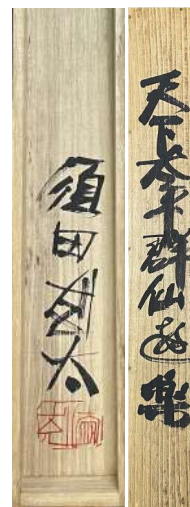 天下太平群仙遊樂
須田剋太